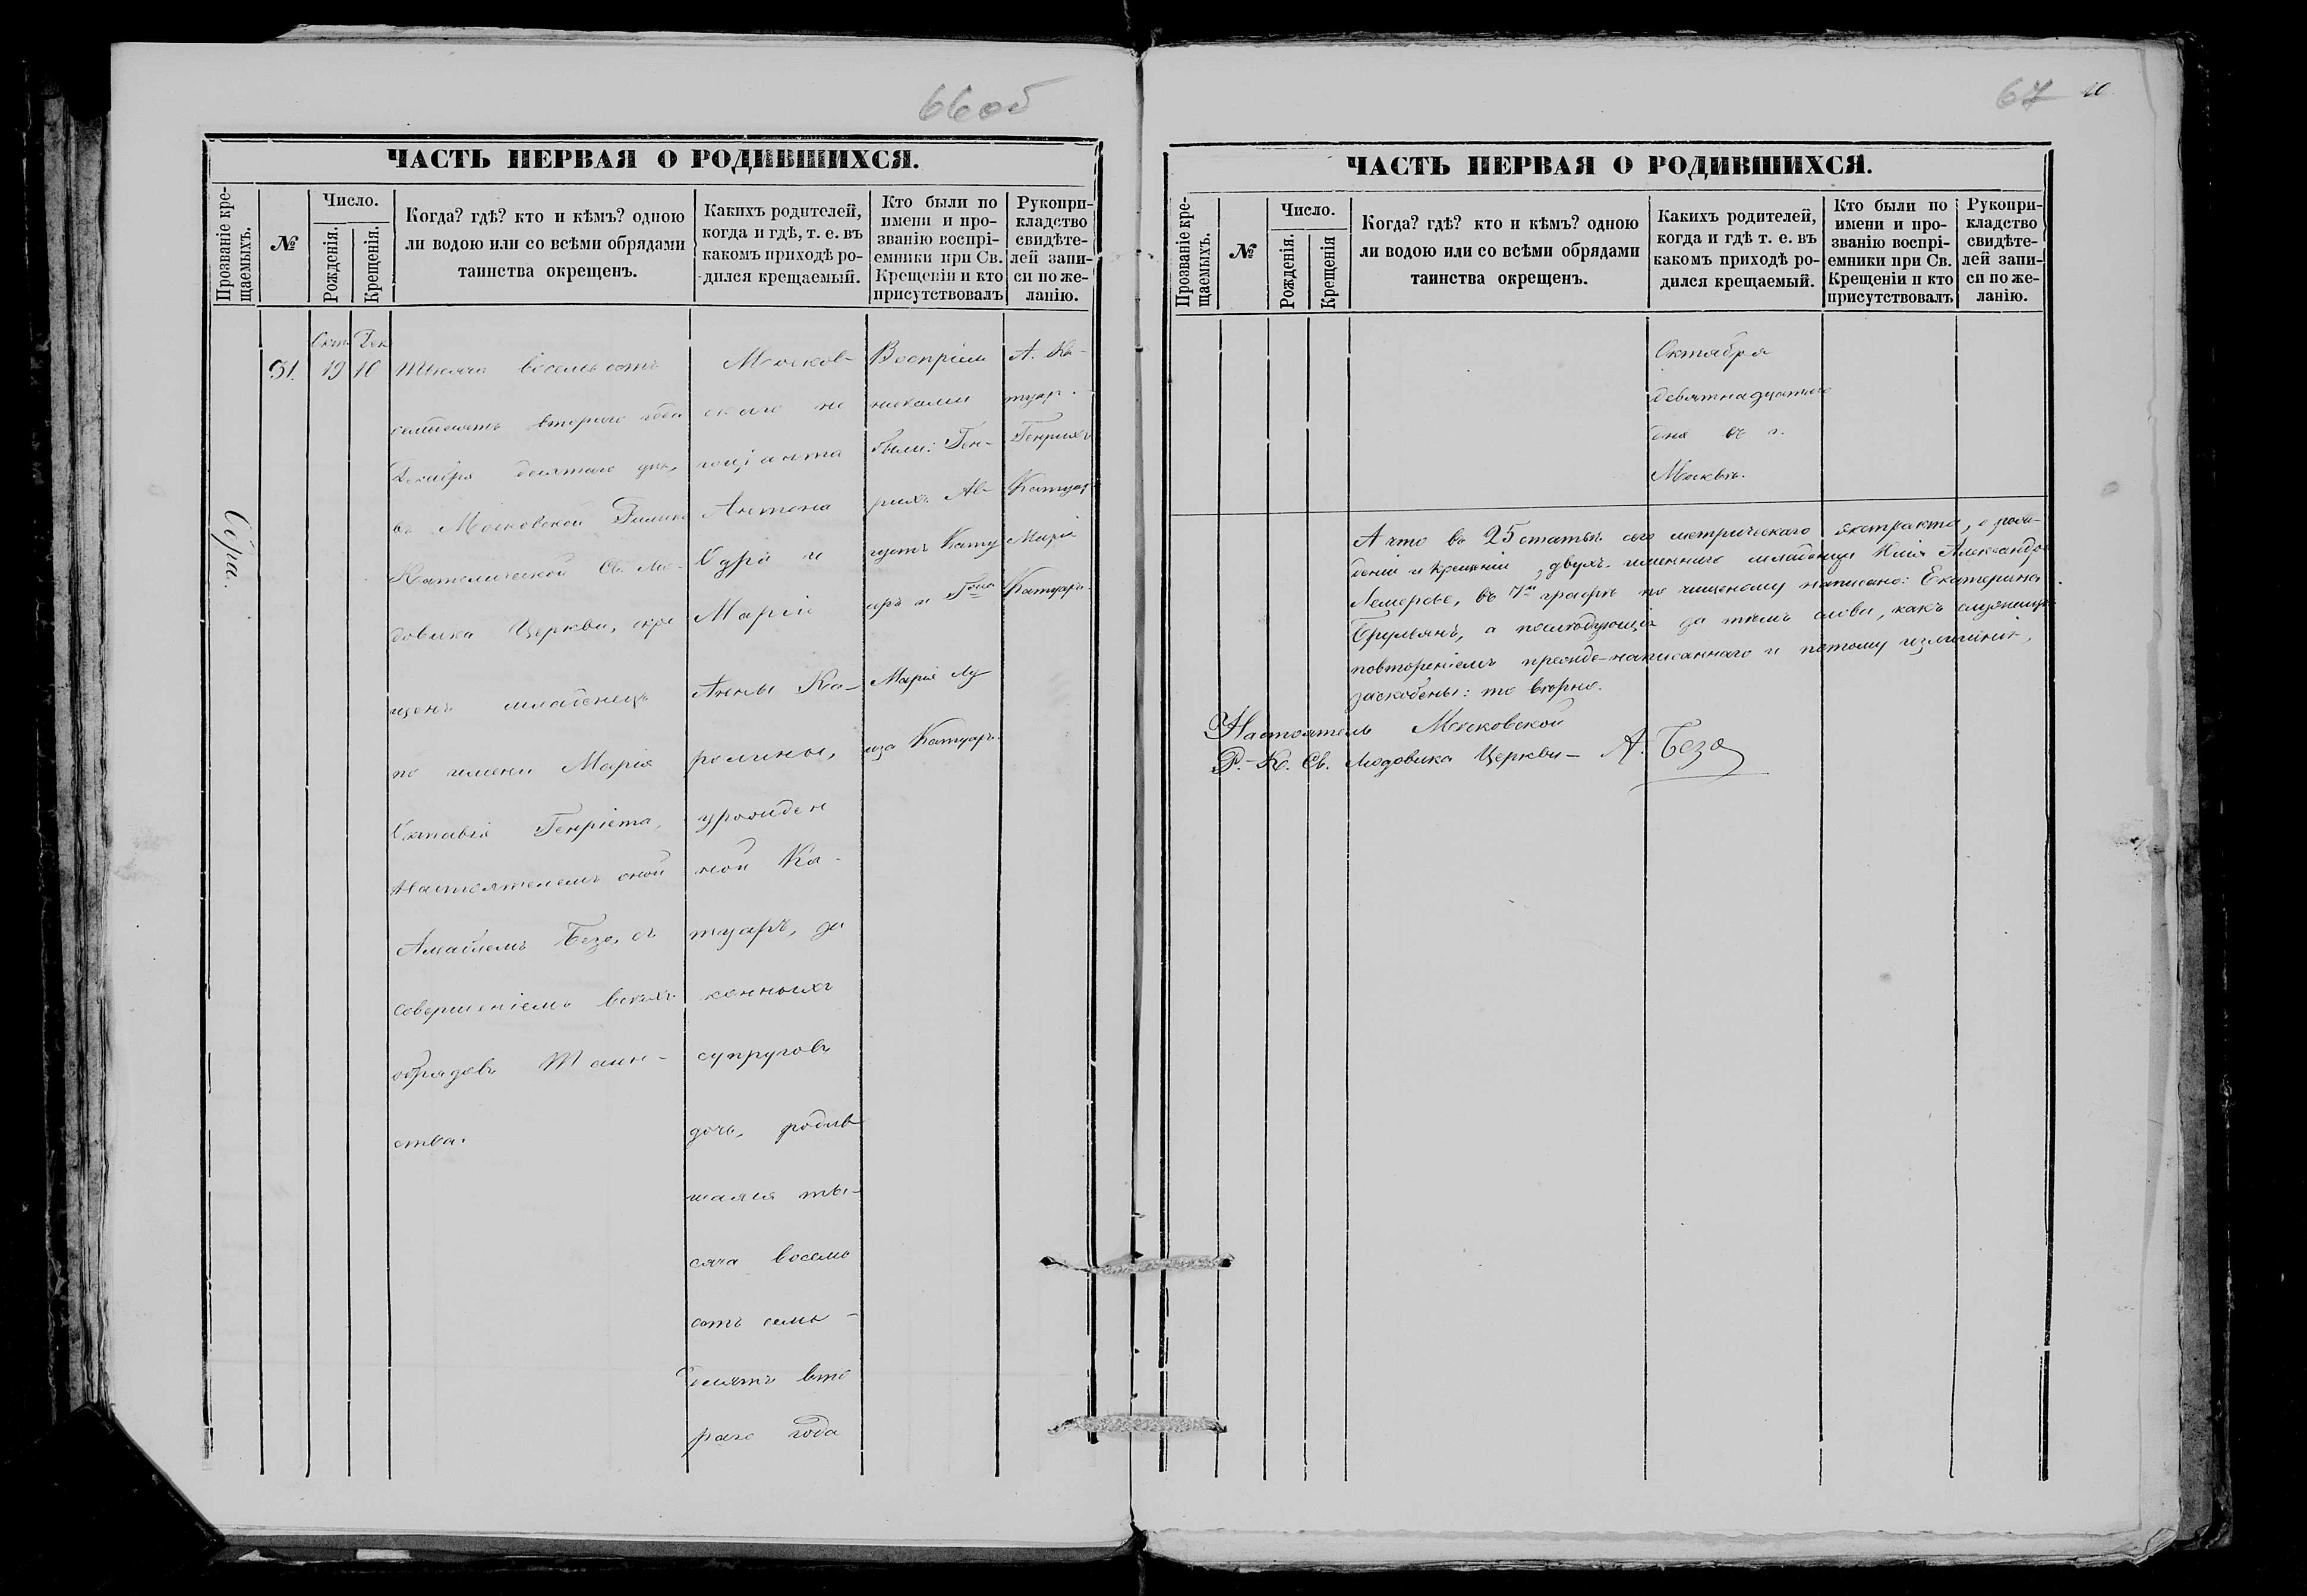 66об
ЧАСТЬ ПЕРВАЯ О РОДИВШИХСЯ.
Прозваніе кре-
щаемыхъ.
№
Число.
Рожденія.
Крещенія.
Когда? гдѣ? кто и кѣмъ? одною
ли водою или со всѣми обрядами
таинства окрещенъ.
Какихъ родителей,
когда и гдѣ, т. е. въ
какомъ приходѣ ро-
дился крещаемый.
Кто были по
имени и про-
званію воспрі-
емники при Св.
Крещеніи и кто
присутствовалъ
Рукопри-
кладство
свидѣте-
лей запи-
си по же-
ланію.
Одра.
31.
Окт.
19
Дек
10
Тысяча восемьсотъ
семьдесятъ втораго года
Декабря десятаго дня,
въ Московской Римско
Католической Св. Лю-
довика Церкви, окре
щенъ младенецъ
по имени Марія
Октавія Генріета,
Настоятелемъ оной
Амаблемъ Безо, съ
совершеніемъ всѣхъ
обрядовъ Таин-
ства.
Москов-
скаго не
гоціанта
Антона
Одра и
Маріи
Анны Ка-
ролины,
урожден
ной Ка-
туаръ, за
конныхъ
супруговъ
дочь, родив
шаяся ты-
сяча восемь
сотъ семь-
десятъ вто
раго года
Воспріем
никами
были: Ген-
рихъ Ав-
густъ Кату
аръ и Г-жа
Марія Лу
иза Катуаръ.
А. Ка-
туаръ.
Генрихъ
Катуаръ
Марія
Катуаръ.
67 10
ЧАСТЬ ПЕРВАЯ О РОДИВШИХСЯ.
Прозваніе кре-
щаемыхъ.
№
Число.
Рожденія.
Крещенія
Когда? гдѣ? кто и кѣмъ? одною
ли водою или со всѣми обрядами
таинства окрещенъ.
Какихъ родителей,
когда и гдѣ т. е. въ
какомъ приходѣ ро-
дился крещаемый.
Кто были по
имени и про-
званію воспрі-
емники при Св.
Крещеніи и кто
присутствовалъ
Рукопри-
кладство
свидѣте-
лей запи-
си по же-
ланію.
Октября
девятнадцатаго
дня въ г.
Москвѣ.
А что въ 25 статьѣ сего метрическаго экстракта, о рож-
деніи и крещеніи двухъ-именнаго младенца Александра
Лемерсье, въ 7й графѣ по чищеному написано: Екатерина
а послѣдующія за тѣмъ слова, какъ
повтореніемъ прежде-написаннаго и потому излишнія,
заскоблены: то вѣрно.
Настоятель Московской
Р.-К. Св. Людовика Церкви – А. Безо